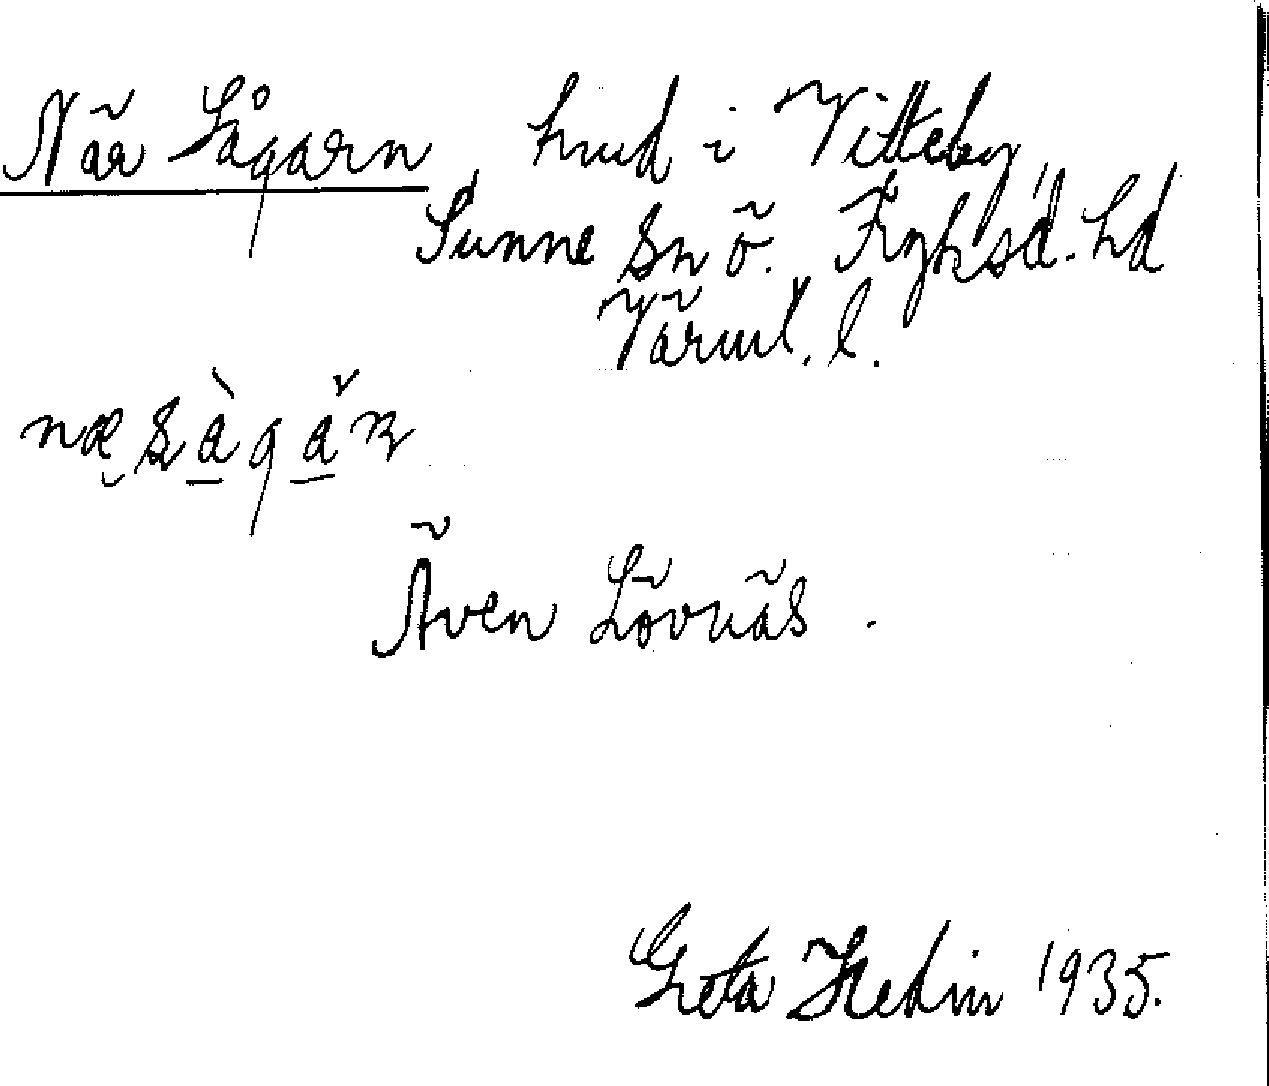 När Sågarn hmd i Vitteby
Sunne sn ö. Fryksd. hd
Värml. l.
Även Lövnäs.
Greta Hedin 1935.